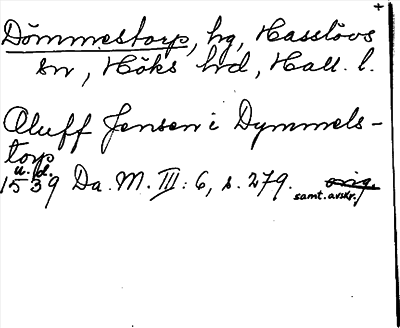 +
Dömmestorp, hg, Hasslövs
sn, Höks hd, Hall. l.
Aluff Jensen i Dymmels-
torp
u. d.
1539 Da. M. III: 6, s. 279. orig.
samt. avskr.